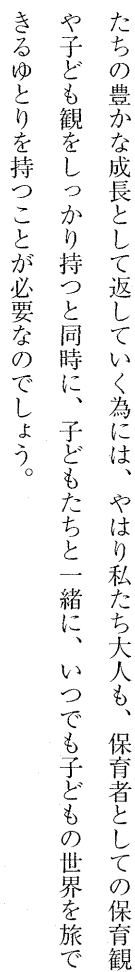 たちの豊かな成長として返していく為には、やはり私たち大人も、保育者としての保育観
や子ども観をしっかり持つと同時に、子どもたちと一緒に、いつでも子どもの世界を旅で
きるゆとりを持つことが必要なのでしょう。